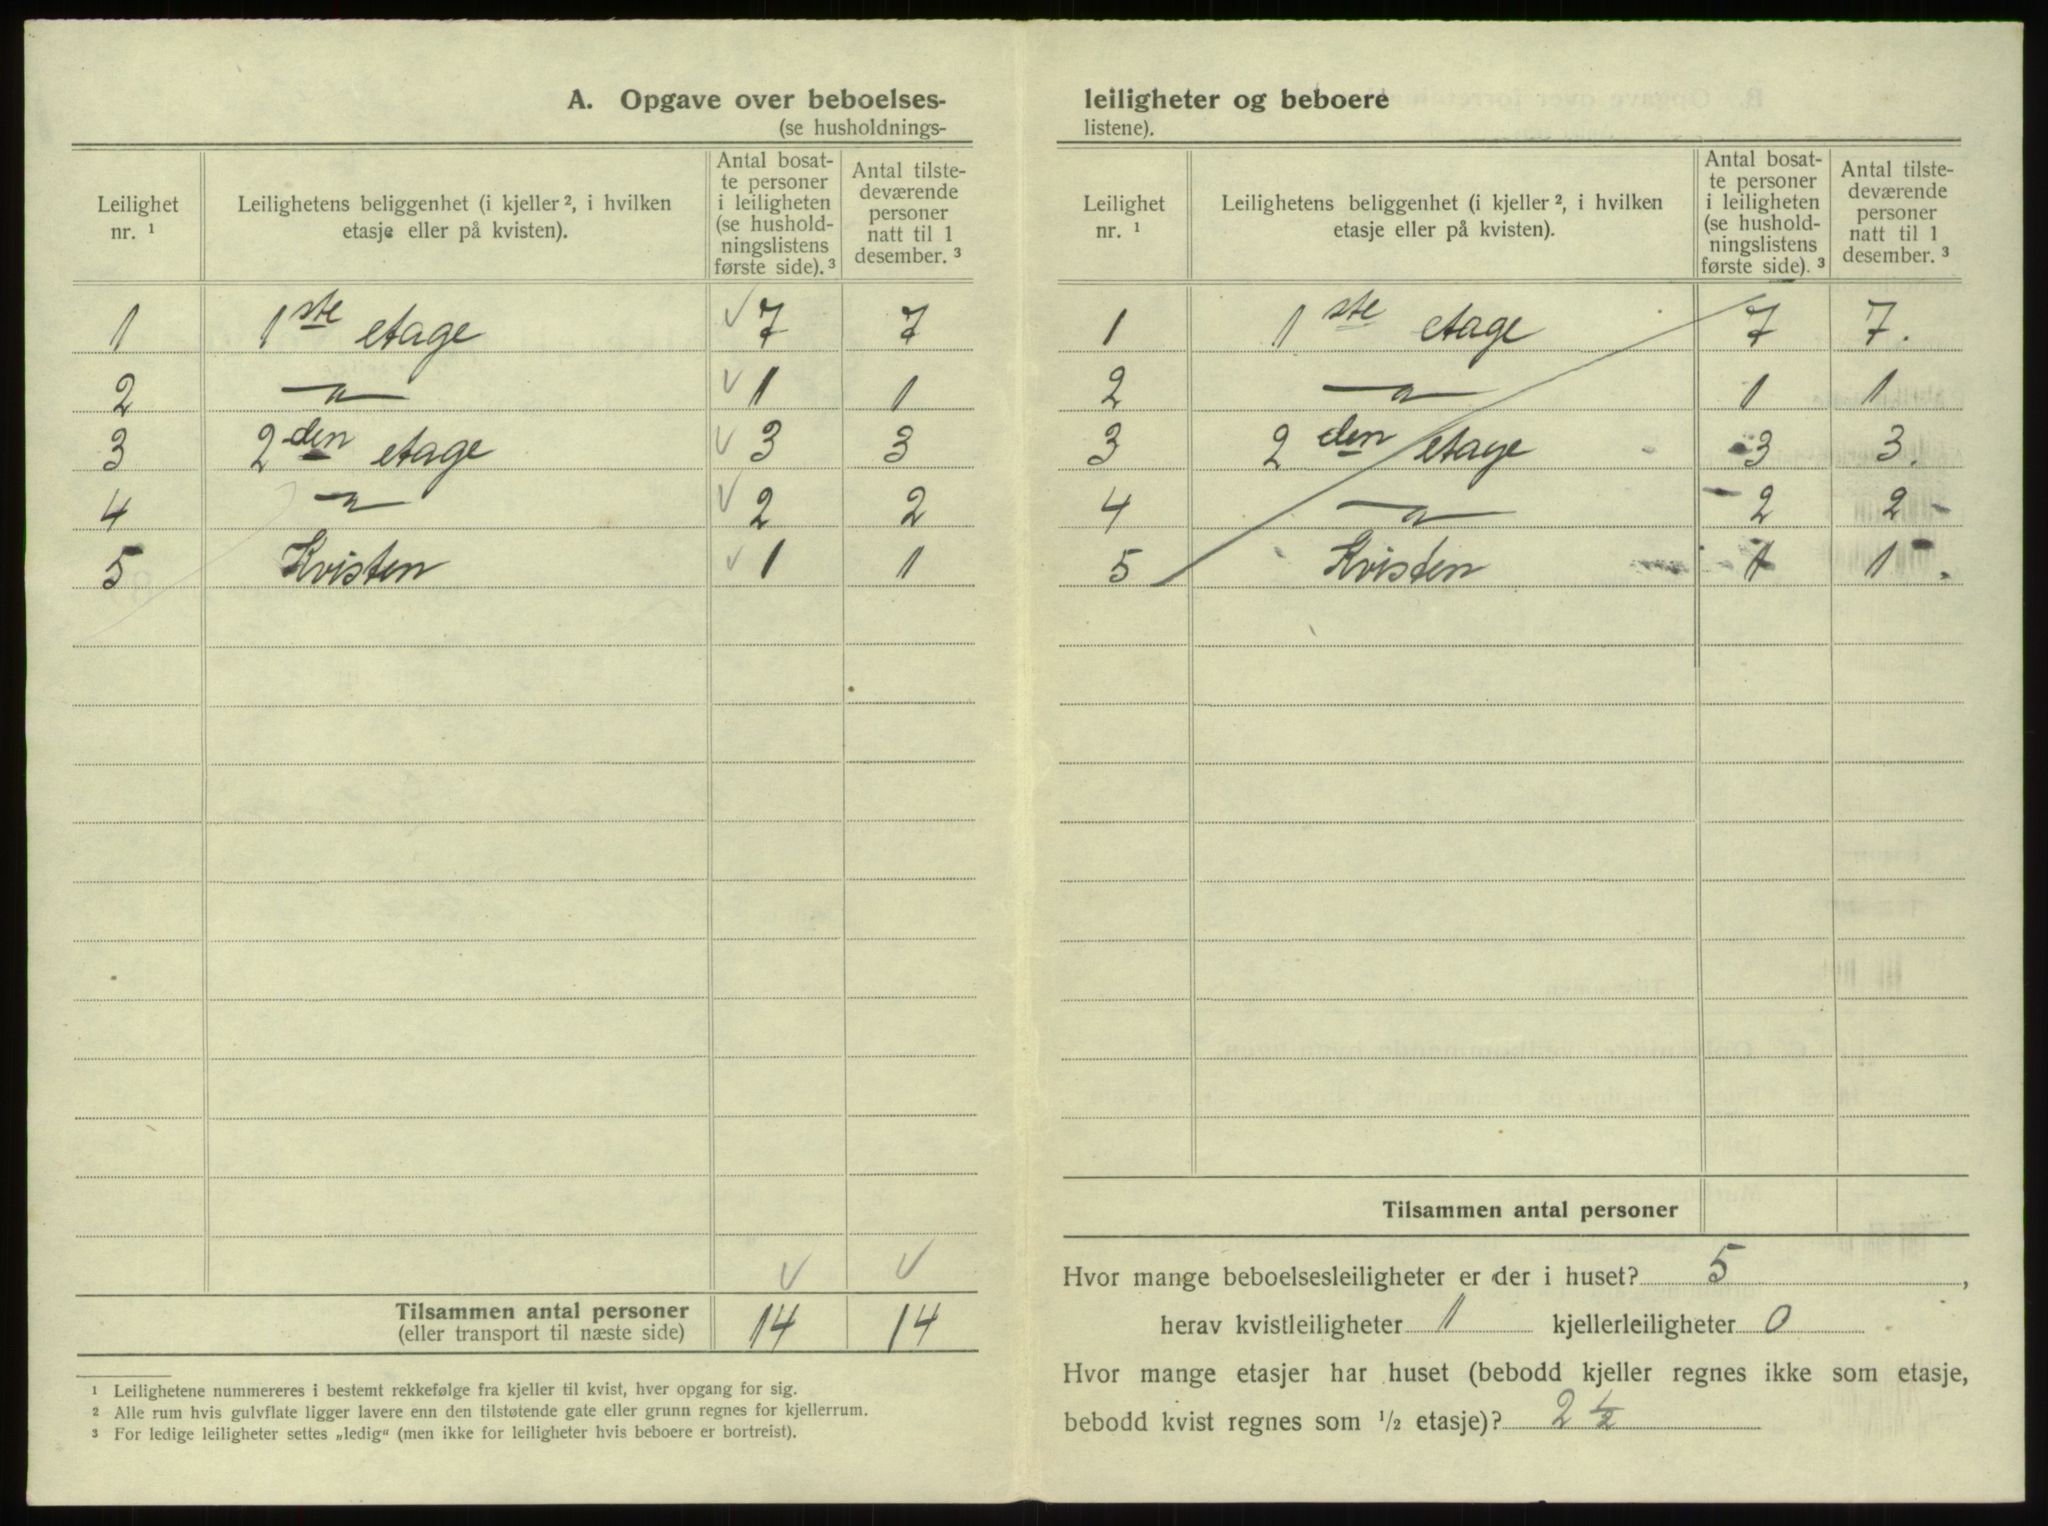 A. Opgave over beboelses-
(se husholdnings-
Leilighet nr. ¹
Leilighetens beliggenhet (i kjeller ², i hvilken etasje eller på kvisten).
Antal bosat-
te personer
i leiligheten
(se hushold-
ningslistens
første side). ³
Antal tilste-
deværende
personer
natt til 1
desember. ³
1 1ste etage 7 7
2 —"— 1 1
3 2den etage 3 3
4 —"— 2 2
5 Kvisten 1 1
Tilsammen antal personer 14 14
(eller transport til næste side)
¹ Leilighetene nummereres i bestemt rekkefølge fra kjeller til kvist, hver opgang for sig.
² Alle rum hvis gulvflate ligger lavere enn den tilstøtende gate eller grunn regnes for kjellerrum.
³ For ledige leiligheter settes „ledig“ (men ikke for leiligheter hvis beboere er bortreist).
leiligheter og beboere
listene).
Leilighet nr. ¹
Leilighetens beliggenhet (i kjeller ², i hvilken etasje eller på kvisten).
Antal bosat-
te personer
i leiligheten
(se hushold-
ningslistens
første side). ³
Antal tilste-
deværende
personer
natt til 1
desember. ³
1 1ste etage 7 7.
2 —"— 1 1
3 2den etage 3 3.
4 —"— 2 2
5 Kvisten 1 1
Tilsammen antal personer
Hvor mange beboelsesleiligheter er der i huset? 5,
herav kvistleiligheter 1 kjellerleiligheter 0
Hvor mange etasjer har huset (bebodd kjeller regnes ikke som etasje,
bebodd kvist regnes som ½ etasje)? 2 ½